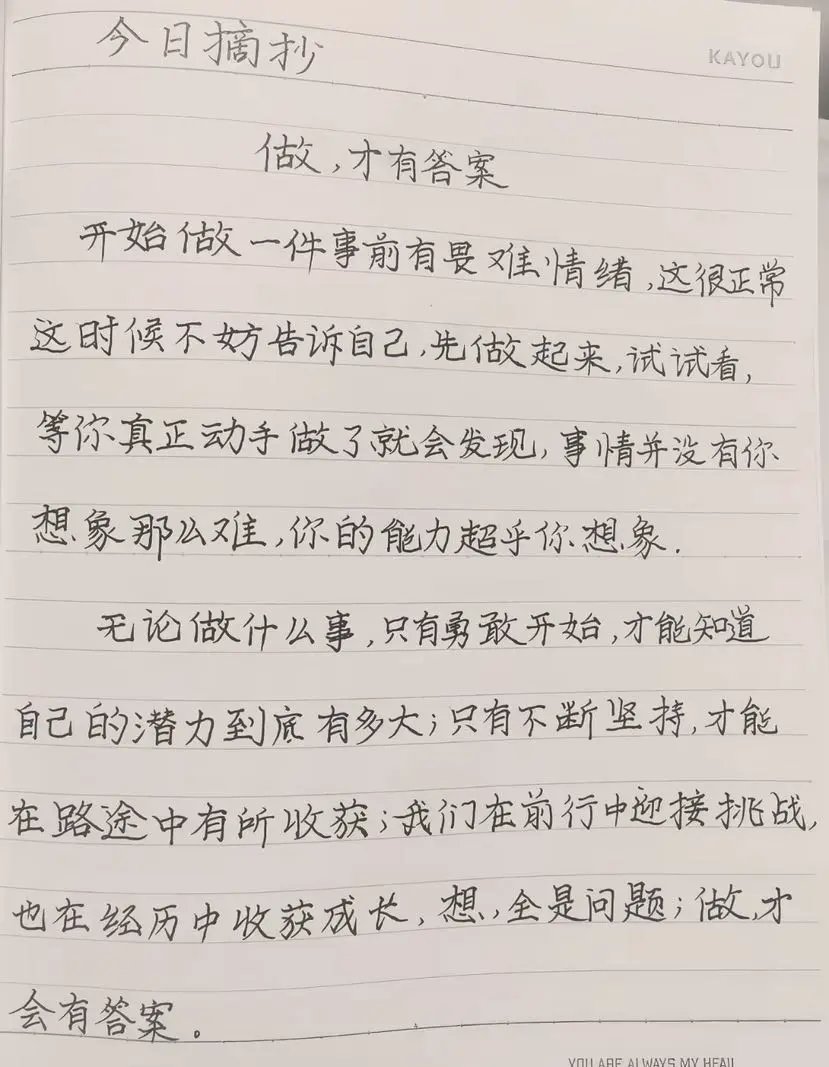 今日摘抄
KAYOU
做，才有答案
开始做一件事前有畏难情绪，这很正常
这时候不妨告诉自己，先做起来，试试看，
等你真正动手做了就会发现，事情并没有你
想象那么难，你的能力超乎你想象.
无论做什么事，只有勇敢开始，才能知道
自己的潜力到底有多大；只有不断坚持，才能
在路途中有所收获；我们在前行中迎接挑战，
也在经历中收获成长，想，全是问题；做，才
会有答案。
YOU ARE ALWAYS MY